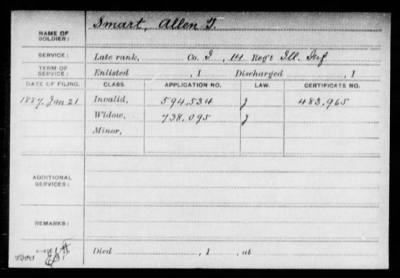 NAME OF SOLDIER: Smart, Allen T.
SERVICE: Late rank, Co. I, 14 Reg't Ill. Inf
TERM OF SERVICE: Enlisted , 1 Discharged , 1
DATE OF FILING. CLASS. APPLICATION NO. LAW. CERTIFICATE NO.
1887, Jan 21 Invalid, 594,534 J 483,965
Widow, 738,095 J
Minor,
ADDITIONAL SERVICES:
REMARKS:
Died , 1 , at